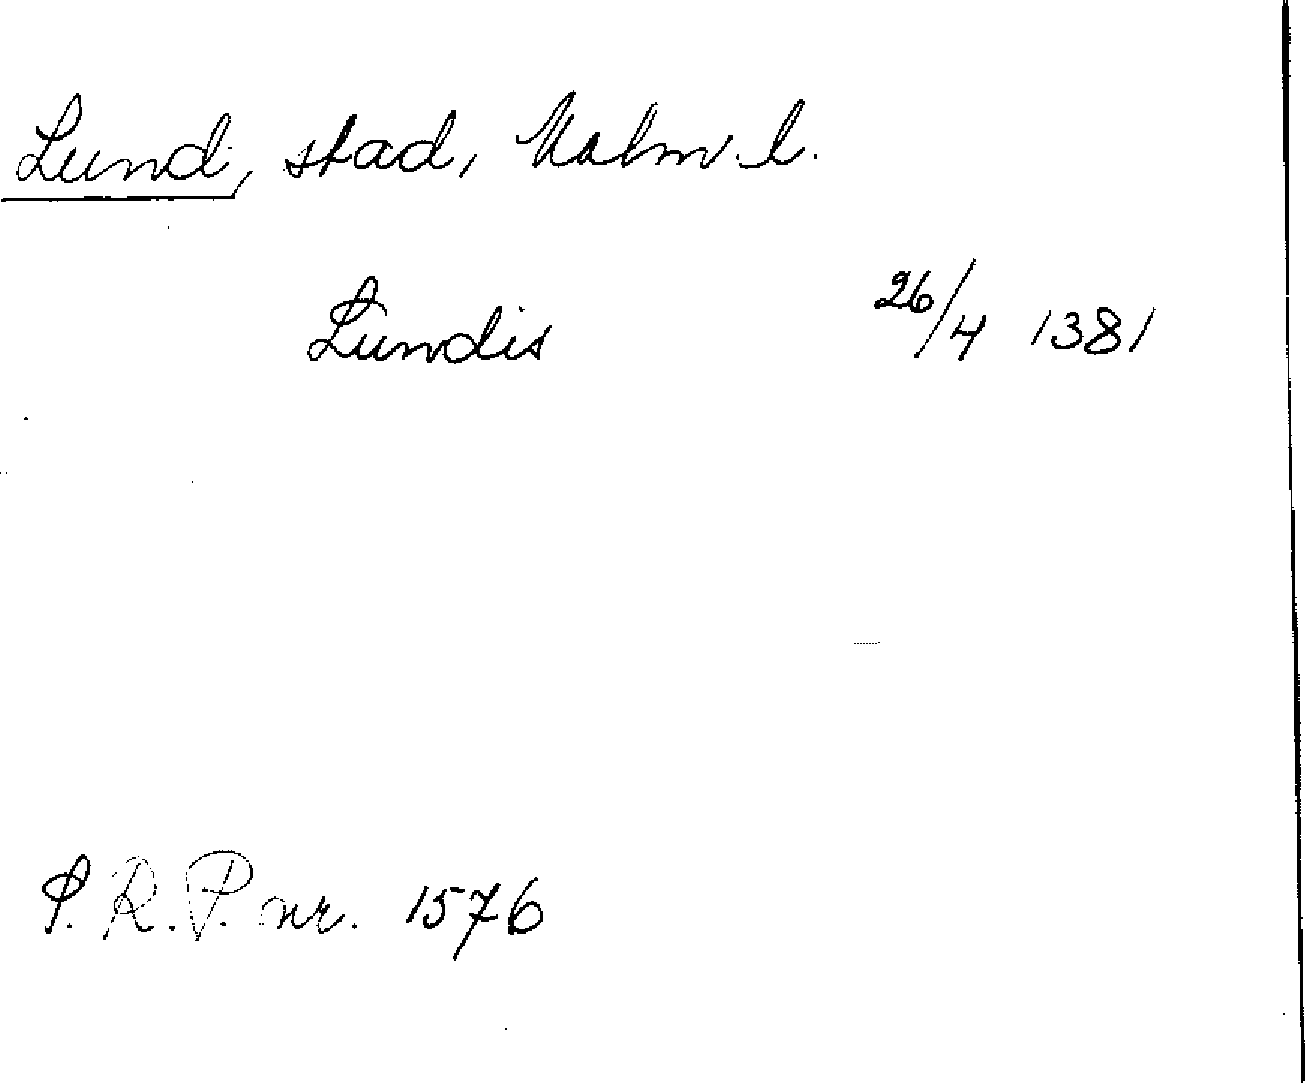 Lund, stad, Malm. l.
Lundis 26/4 1381
S. R. P. nr. 1576